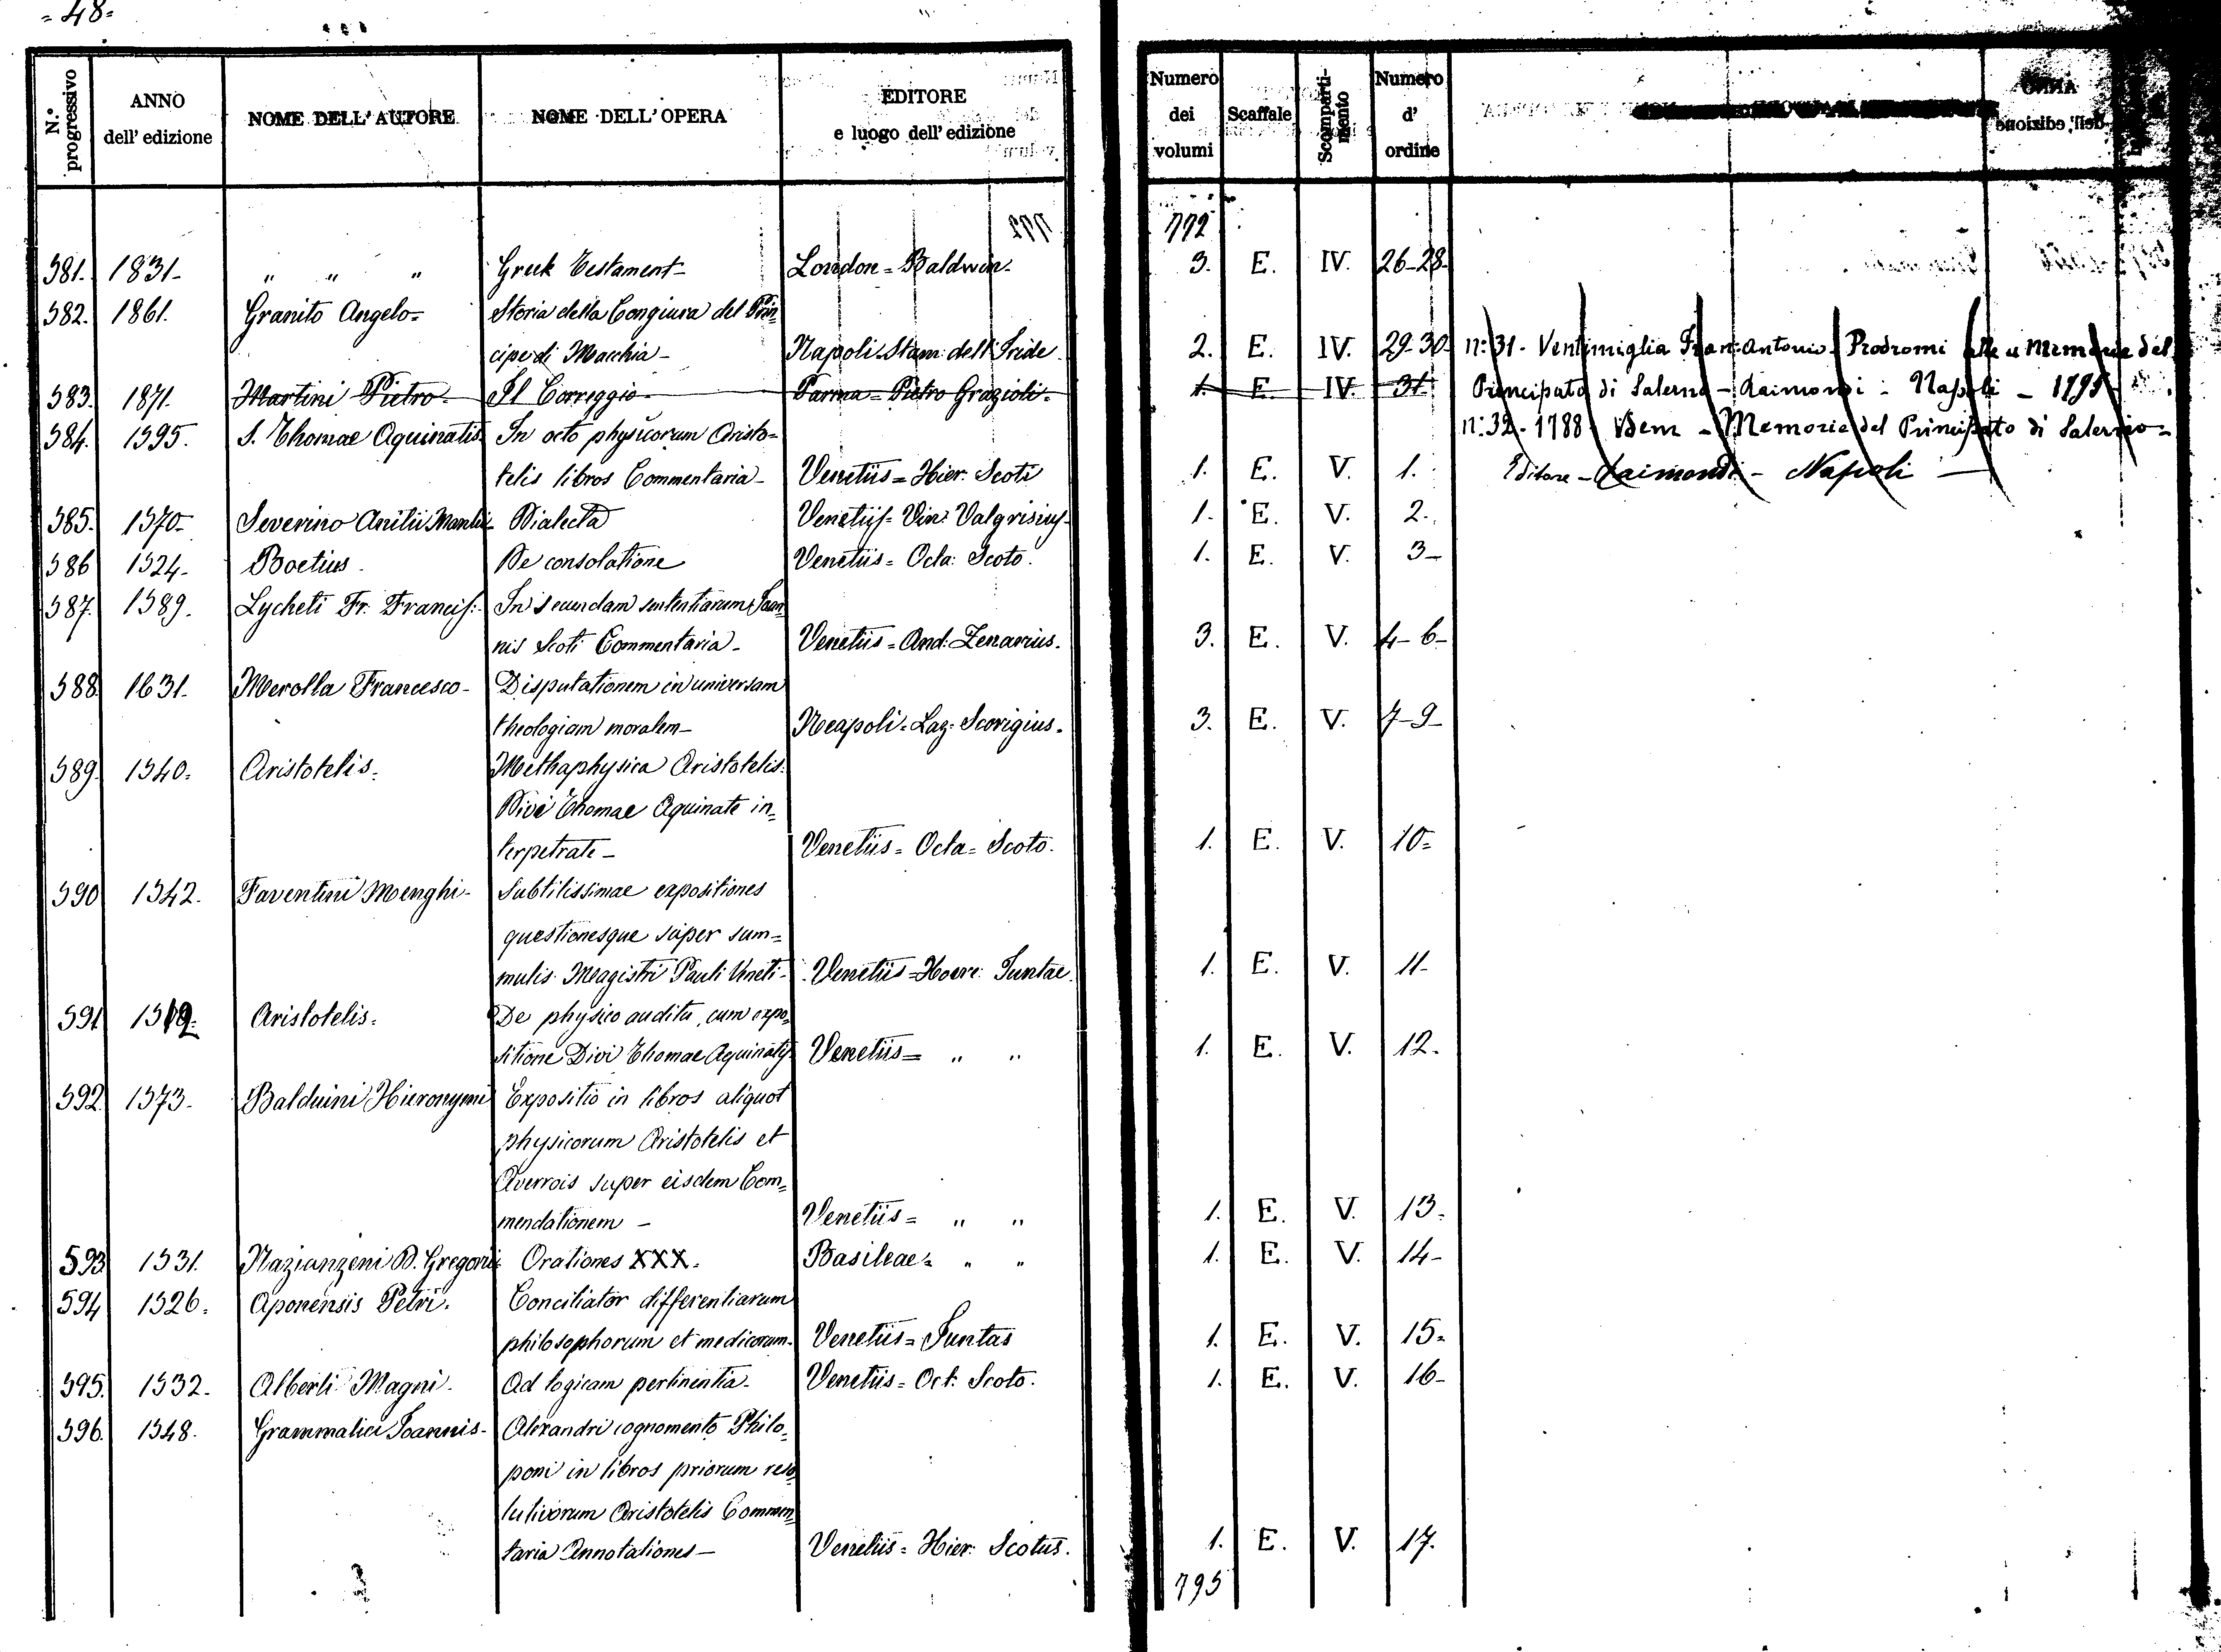 = 48 =
N.° progressivo
ANNO dell' edizione
NOME DELL' AUTORE
NOME DELL' OPERA
EDITORE e luogo dell' edizione
Numero dei volumi
Scaffale
Scomparti-mento
Numero d' ordine
772
581. 1831- " " " Greek Testament- London = Baldwin. 3. E. IV. 26-28-
582. 1861. Granito Angelo= Storia della Congiura del Prin=
cipe di Macchia- Napoli Stam: dell'Iride. 2. E. IV. 29-30- n:° 31 - Ventimiglia Fran: Antonio - Prodromi alle Memorie del
583. 1871. Martini Pietro- Il Correggio- Parma = Pietro Grazioli- 1. E. IV. 31. Principato di Salerno - Raimondi - Napoli - 1795
584. 1595. S. Thomae Aquinatis In octo physicorum Aristo= n:° 32 - 1788 Idem - Memorie del Principato di Salerno -
telis libros Commentaria- Venetiis = Hier: Scoti 1. E. V. 1. Editore - Raimondi - Napoli -
585. 1570- Severino Anitii Manlii- Dialecta Venetiis= Vin: Valgrisius- 1. E. V. 2.
586 1524- Boetius. De consolatione Venetiis= Octa: Scoto. 1. E. V. 3-
587. 1589. Lycheti Fr. Francis:- In secundam sententiarum Joan
nis Scoti Commentaria- Venetiis = And: Zenarius. 3. E. V. 4-6-
588. 1631- Merolla Francesco- Disputationem in universam
theologiam moralem- Neapoli= Laz: Scorigius. 3. E. V. 7-9-
589. 1540= Aristotelis. Methaphysica Aristotelis:
Divi Thomae Aquinate in=
terpetrate- Venetiis = Octa= Scoto. 1. E. V. 10=
590 1542. Faventini Menghi- Subtilissimae expositiones
questionesque super sum=
mulis Magistri Pauli Veneti- Venetiis = Haere: Juntae. 1. E. V. 11-
591. 1519= Aristotelis. De physico auditu, cum expo=
sitione Divi Thomae Aquinatis Venetiis= " " 1. E. V. 12.
592. 1573- Balduini Hieronymi Expositio in libros aliquot
physicorum Aristotelis et
Averrois super eisdem Com=
mendationem - Venetiis= " " 1. E. V. 13.
593. 1531. Nazianzeni D. Gregorii Orationes XXX. Basileae= " " 1. E. V. 14-
594 1526. Aponensis Petri. Conciliator differentiarum
philosophorum et medicorum- Venetiis = Juntas 1. E. V. 15=
595. 1532. Alberti Magni. Ad logicam pertinentia- Venetiis= Oct: Scoto. 1. E. V. 16-
596. 1548. Grammatici Joannis- Alexandri cognomento Philo=
poni in libros priorum reso
lutivorum Aristotelis Commen
taria Annotationes- Venetiis= Hier: Scotus. 1. E. V. 17.
795